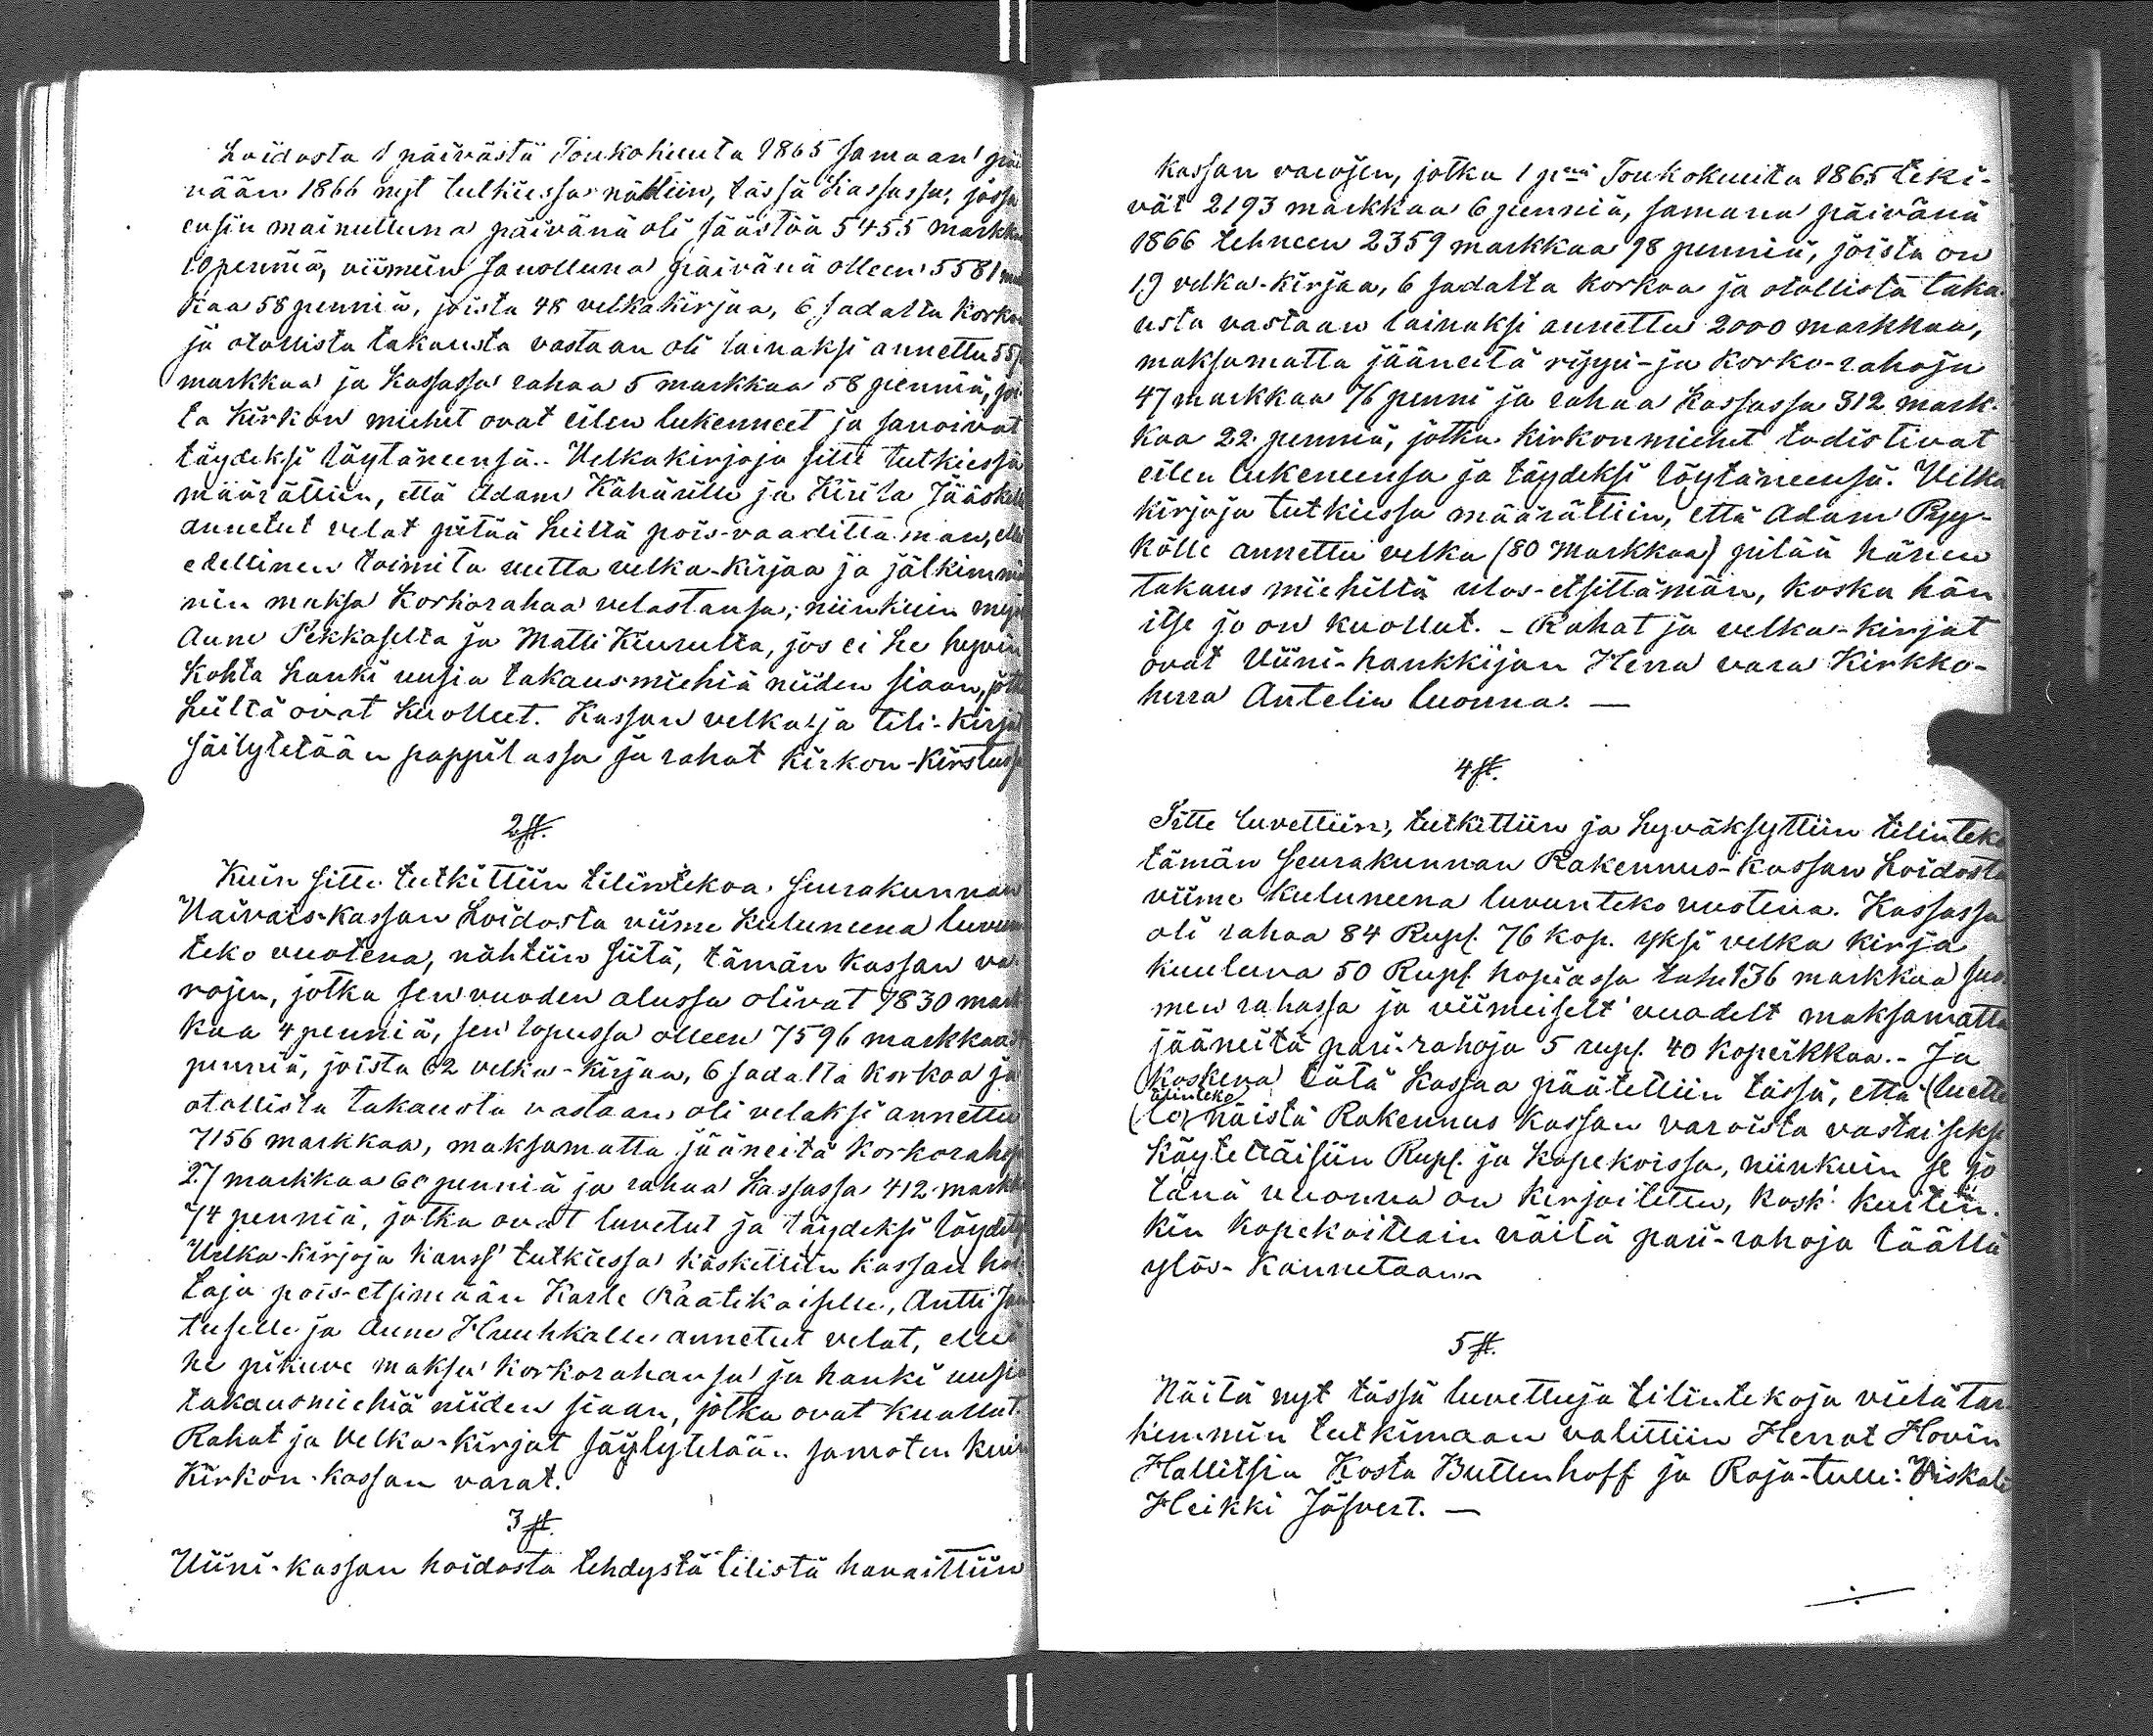 hoidosta 1 päivästä Toukokuuta 1865 samaan päi
vään 1866 nyt tutkiessa nähtiin, tässä Kassassa, jossa
ensin mainittuna päivänä oli säästöä 5455 markkaa
10 penniä, viimein sanottuna päivänä olleen 5581 mark
kaa 58 penniä, joista 48 velkakirjaa, 6 sadalta korkoa
ja otollista takausta vastaan oli lainaksi annettu 55
markkaa ja Kassassa rahaa 5 markkaa 58 penniä, joi
ta Kirkon miehet ovat eilen lukenneet ja sanoivat
täydeksi löytäneensä. Velkakirjoja sitte tutkiessa
määrättiin, että Adam Kähärille ja Kirila Jääske
annetut velat pitää heiltä pois-vaadittaman, ellei
edellinen toimita uutta velka-kirjaa ja jälkimmäi
nen maksa Korkorahaa velastansa, niinkuin myös
Anni Pekkaselta ja Matti Kiurulta, jos ei he hyvin
kohta hanki uusia takausmiehiä niiden siaan, jotka
heiltä ovat kuolleet. Kassan velka- ja tili-kirjat
säilytetään pappilassa ja rahat Kirkon-Kirstussa
2 §.
Kuin sitte tutkittiin tilintekoa Seurakunnan
Vaivais-Kassan hoidosta viime kuluneena luvun
teko vuotena, nähtiin siitä, tämän Kassan va
rojen, jotka sen vuoden alussa olivat 7830 mark
kaa 4 penniä, sen lopussa olleen 7596 markkaa
penniä, joista 62 velka-kirjaa, 6 sadalta korkoa ja
otollista takausta vastaan oli velaksi annettu
7156 markkaa, maksamatta jääneitä Korkorahoja
27 markkaa 60 penniä ja rahaa Kassassa 412 markkaa
74 penniä, jotka ovat luvetut ja täydeksi löydetyt
Velka-kirjoja kanss' tutkiessa käskettiin Kassan hoi
taja pois-etsimään Karle Räätikaiselle, Antti
tuselle ja Anni Huuhkalle annetut velat, ellei
he pikuve maksa Korkorahansa ja hanki uusia
takausmiehiä niiden siaan, jotka ovat kuollut.
Rahat ja Velka-kirjat säilytetään samoten kuin
Kirkon-Kassan varat.
3 §.
Viini-kassan hoidosta tehdystä tilistä havaittiin
Kassan varojen, jotka 1 pnä Toukokuuta 1865 teki-
vät 2193 markkaa 6 penniä, samana päivänä
1866 tehneen 2359 markkaa 98 penniä, joista on
19 velka-kirjaa, 6 sadalta korkoa ja otollista taka-
usta vastaan lainaksi annettu 2000 markkaa,
maksamatta jääneitä ryypi- ja Korko-rahoja
47 markkaa 76 penni ja rahaa Kassassa 312 mark-
kaa 22 penniä, jotka Kirkonmiehet todistivat
eilen lukeneensa ja täydeksi löytäneensä. Velka
kirjoja tutkiessa määrättiin, että Adam Pyy-
kölle annettu velka (80 Markkaa) pitää hänen
takaus miehiltä ulos-etsittämän, koska hän
itse jo on kuollut. - Rahat ja velka-kirjat
ovat Viini-hankkijan Herra vara Kirkko-
herra Antelin luonna. —
4 §.
Sitte luvettiin, tutkittiin ja hyväksyttiin tilinteko
tämän Seurakunnan Rakennus-Kassan hoidosta
viime kuluneena luvunteko vuotena. Kassassa
oli rahaa 84 Rupl. 76 kop. yksi velka kirja
kuuluva 50 Rupl. hopiassa tahi 136 markkaa suo
men rahassa ja viimeiselt' vuodelt maksamatta
jääneitä pari-rahoja 5 rupl. 40 kopeikkaa. - Ja
koskeva tätä Kassaa päätettiin tässä, että (luette
tilinteko
lo) näistä Rakennus Kassan varoista vastaiseksi
Käytettäisiin Rupl. ja Kopekoissa, niinkuin se jo
tänä vuonna on kirjoitettu, kosk' kuiten-
kin kopekoittain näitä pari-rahoja täällä
ylös-kannetaan.
5 §.
Näitä nyt tässä luvettuja tilintekoja vielä tar
kemmin tutkimaan valittiin Herrat Hovin
Hallitsia Kosta Buttenhoff ja Raja-tulli: Viskali
Heikki Jäfvert. —